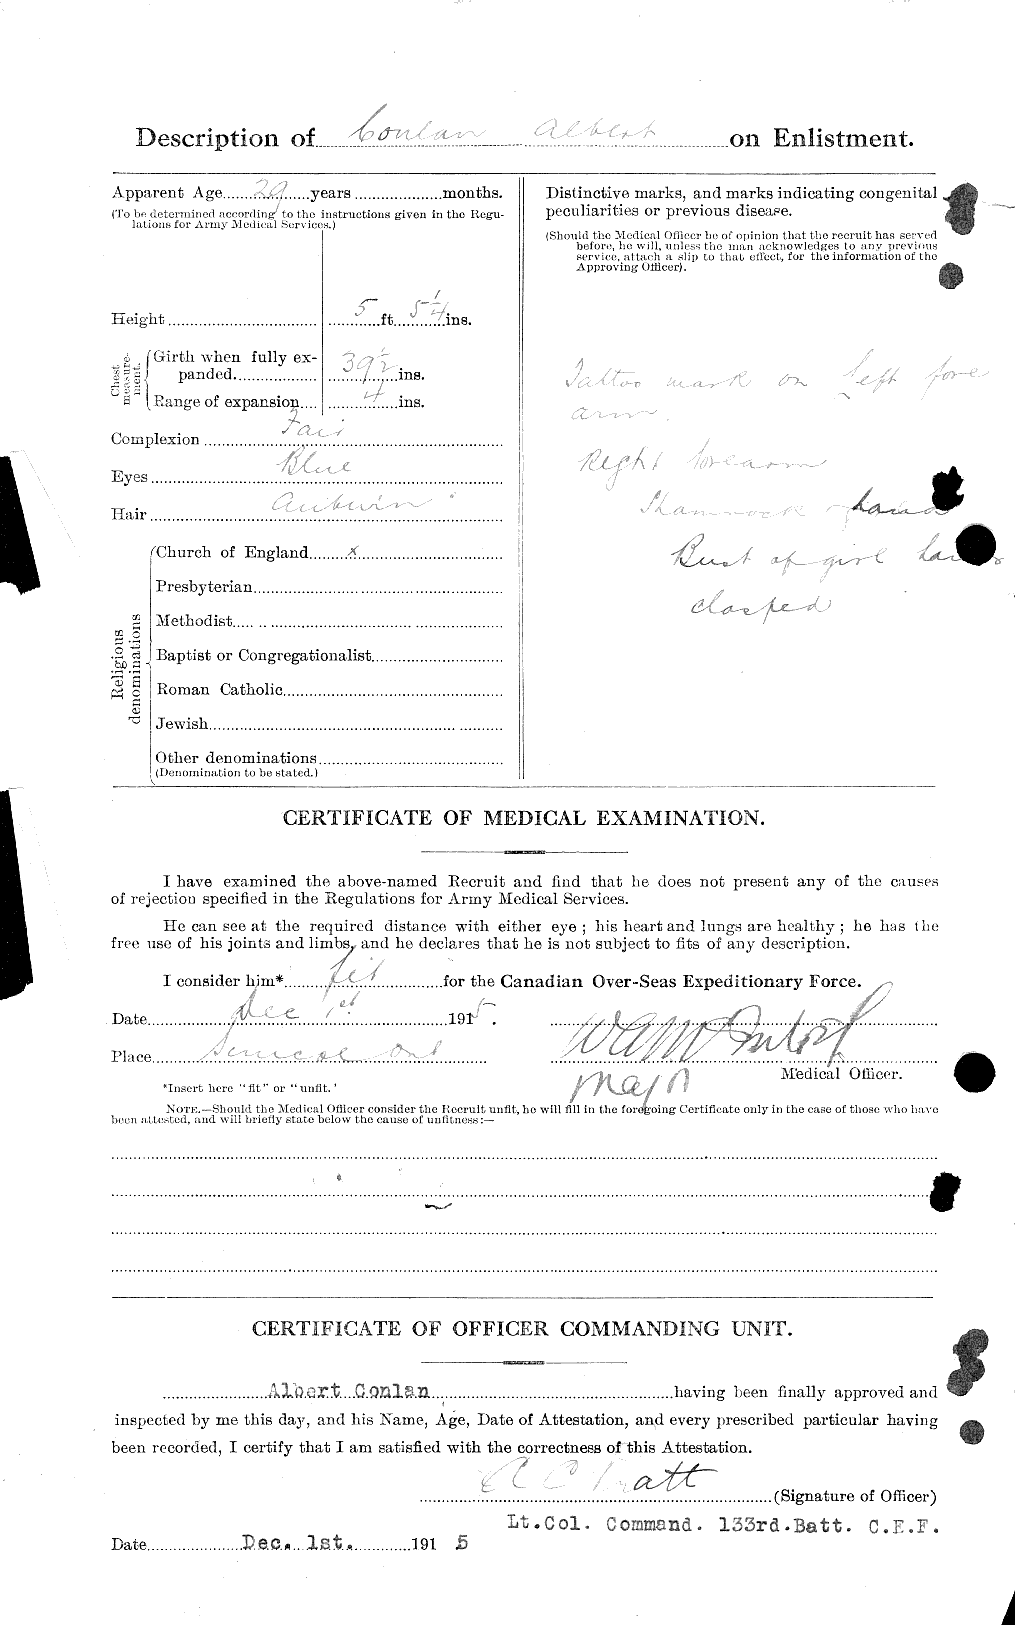 Description of Conlan Albert on Enlistment.
Apparent Age 29 years months.
(To be determined according to the instructions given in the Regu-
lations for Army Medical Services.)
Height 5 ft. 5 1/4 ins.
Chest measurement.
Girth when fully ex-
panded 39 1/2 ins.
Range of expansion 4 ins.
Complexion Fair
Eyes Blue
Hair Auburn
Religious denominations
Church of England x
Presbyterian
Methodist
Baptist or Congregationalist
Roman Catholic
Jewish
Other denominations
(Denomination to be stated.)
Distinctive marks, and marks indicating congenital
peculiarities or previous disease.
(Should the Medical Officer be of opinion that the recruit has served
before, he will, unless the man acknowledges to any previous
service, attach a slip to that effect, for the information of the
Approving Officer).
Tattoo mark on left fore
arm.
Right forearm
Shamrock hand
Bust of girl
clasped
CERTIFICATE OF MEDICAL EXAMINATION.
I have examined the above-named Recruit and find that he does not present any of the causes
of rejection specified in the Regulations for Army Medical Services.
He can see at the required distance with either eye ; his heart and lungs are healthy ; he has the
free use of his joints and limbs, and he declares that he is not subject to fits of any description.
I consider him* fit for the Canadian Over-Seas Expeditionary Force.
Date Dec 1st 1915.
Place Simcoe Ont
Medical Officer.
Major
*Insert here "fit" or "unfit.'
NOTE.—Should the Medical Officer consider the Recruit unfit, he will fill in the foregoing Certificate only in the case of those who have
been attested, and will briefly state below the cause of unfitness :—
CERTIFICATE OF OFFICER COMMANDING UNIT.
Albert Conlan having been finally approved and
inspected by me this day, and his Name, Age, Date of Attestation, and every prescribed particular having
been recorded, I certify that I am satisfied with the correctness of this Attestation.
A C Pratt (Signature of Officer)
Lt.Col. Command. 133rd.Batt. C.E.F.
Date Dec. 1st. 191 5